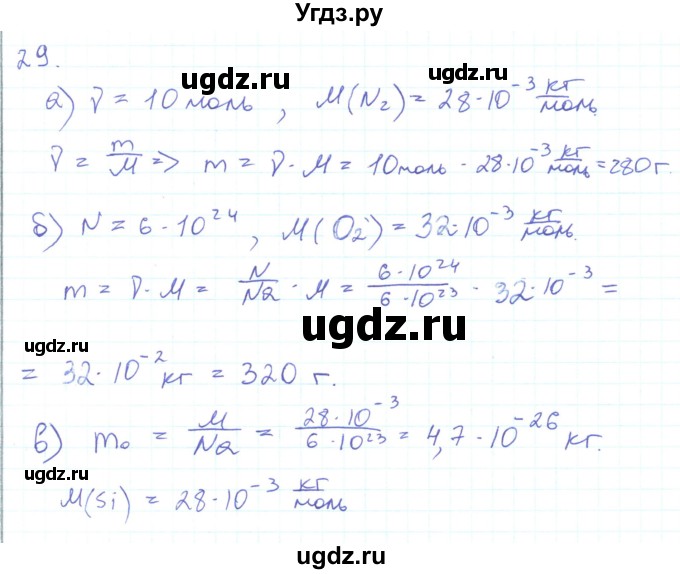 Угдз.ру
29.
а) ν = 10 моль , M(N₂) = 28·10⁻³ кг/моль
ugdz.ru
ugdz.ru
ν = m/M => m = ν·M = 10 моль · 28·10⁻³ кг/моль = 280 г.
б) N = 6·10²⁴ , M(O₂) = 32·10⁻³ кг/моль.
m = ν·M = N/Na · M = 6·10²⁴/6·10²³ · 32·10⁻³ =
ugdz.ru
ugdz.ru
= 32·10⁻² кг = 320 г.
в) m₀ = M/Na = 28·10⁻³/6·10²³ = 4,7·10⁻²⁶ кг.
ugdz.ru
M(Si) = 28·10⁻³ кг/моль
ugdz.ru
ugdz.ru